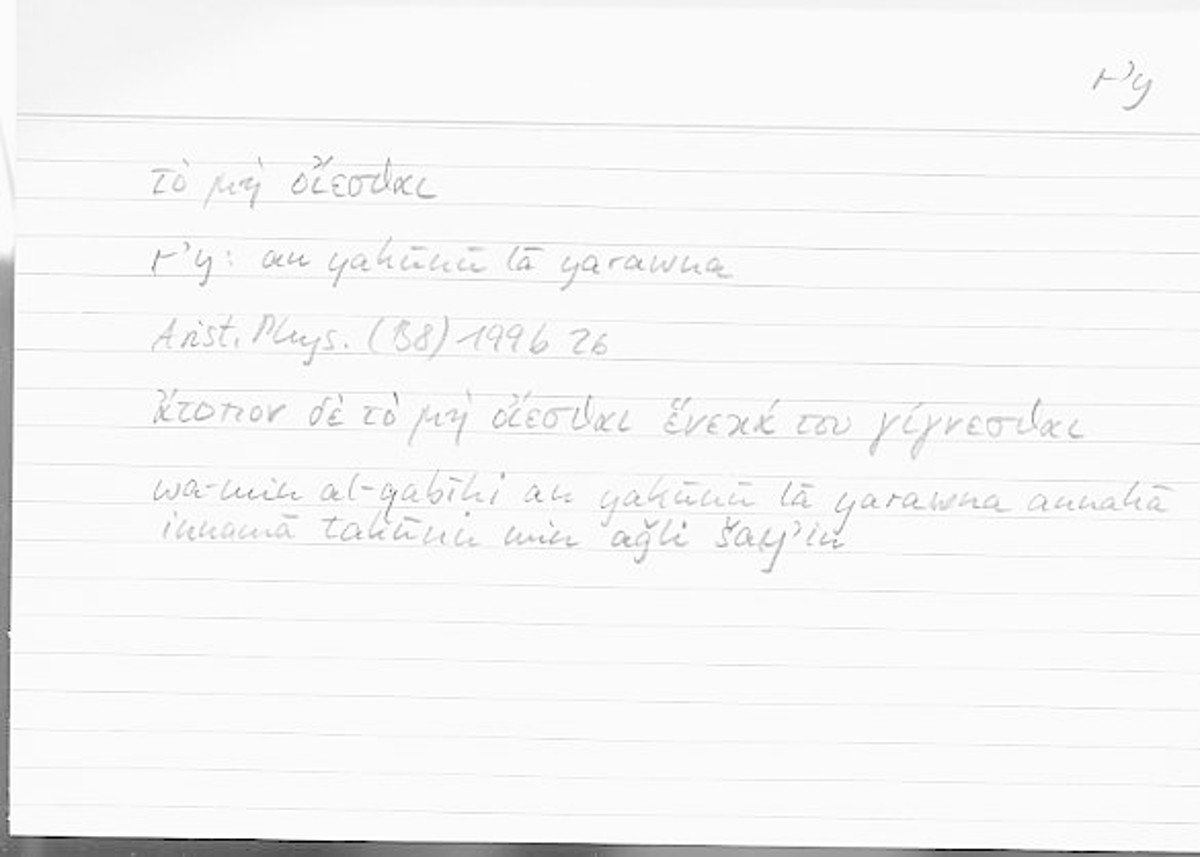 rʾy
τὸ μὴ οἴεσθαι
rʾy: an yakūnū lā yarawna
Arist. Phys. (B8) 199b 26
ἄτοπον δὲ τὸ μὴ οἴεσθαι ἕνεκά του γίγνεσθαι
wa-min al-qabīḥi an yakūnū lā yarawna annahā
innamā takūnu min aǧli šayʾin